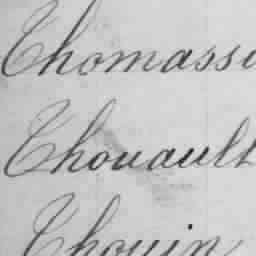 Thomassi
Thouault
Thouin